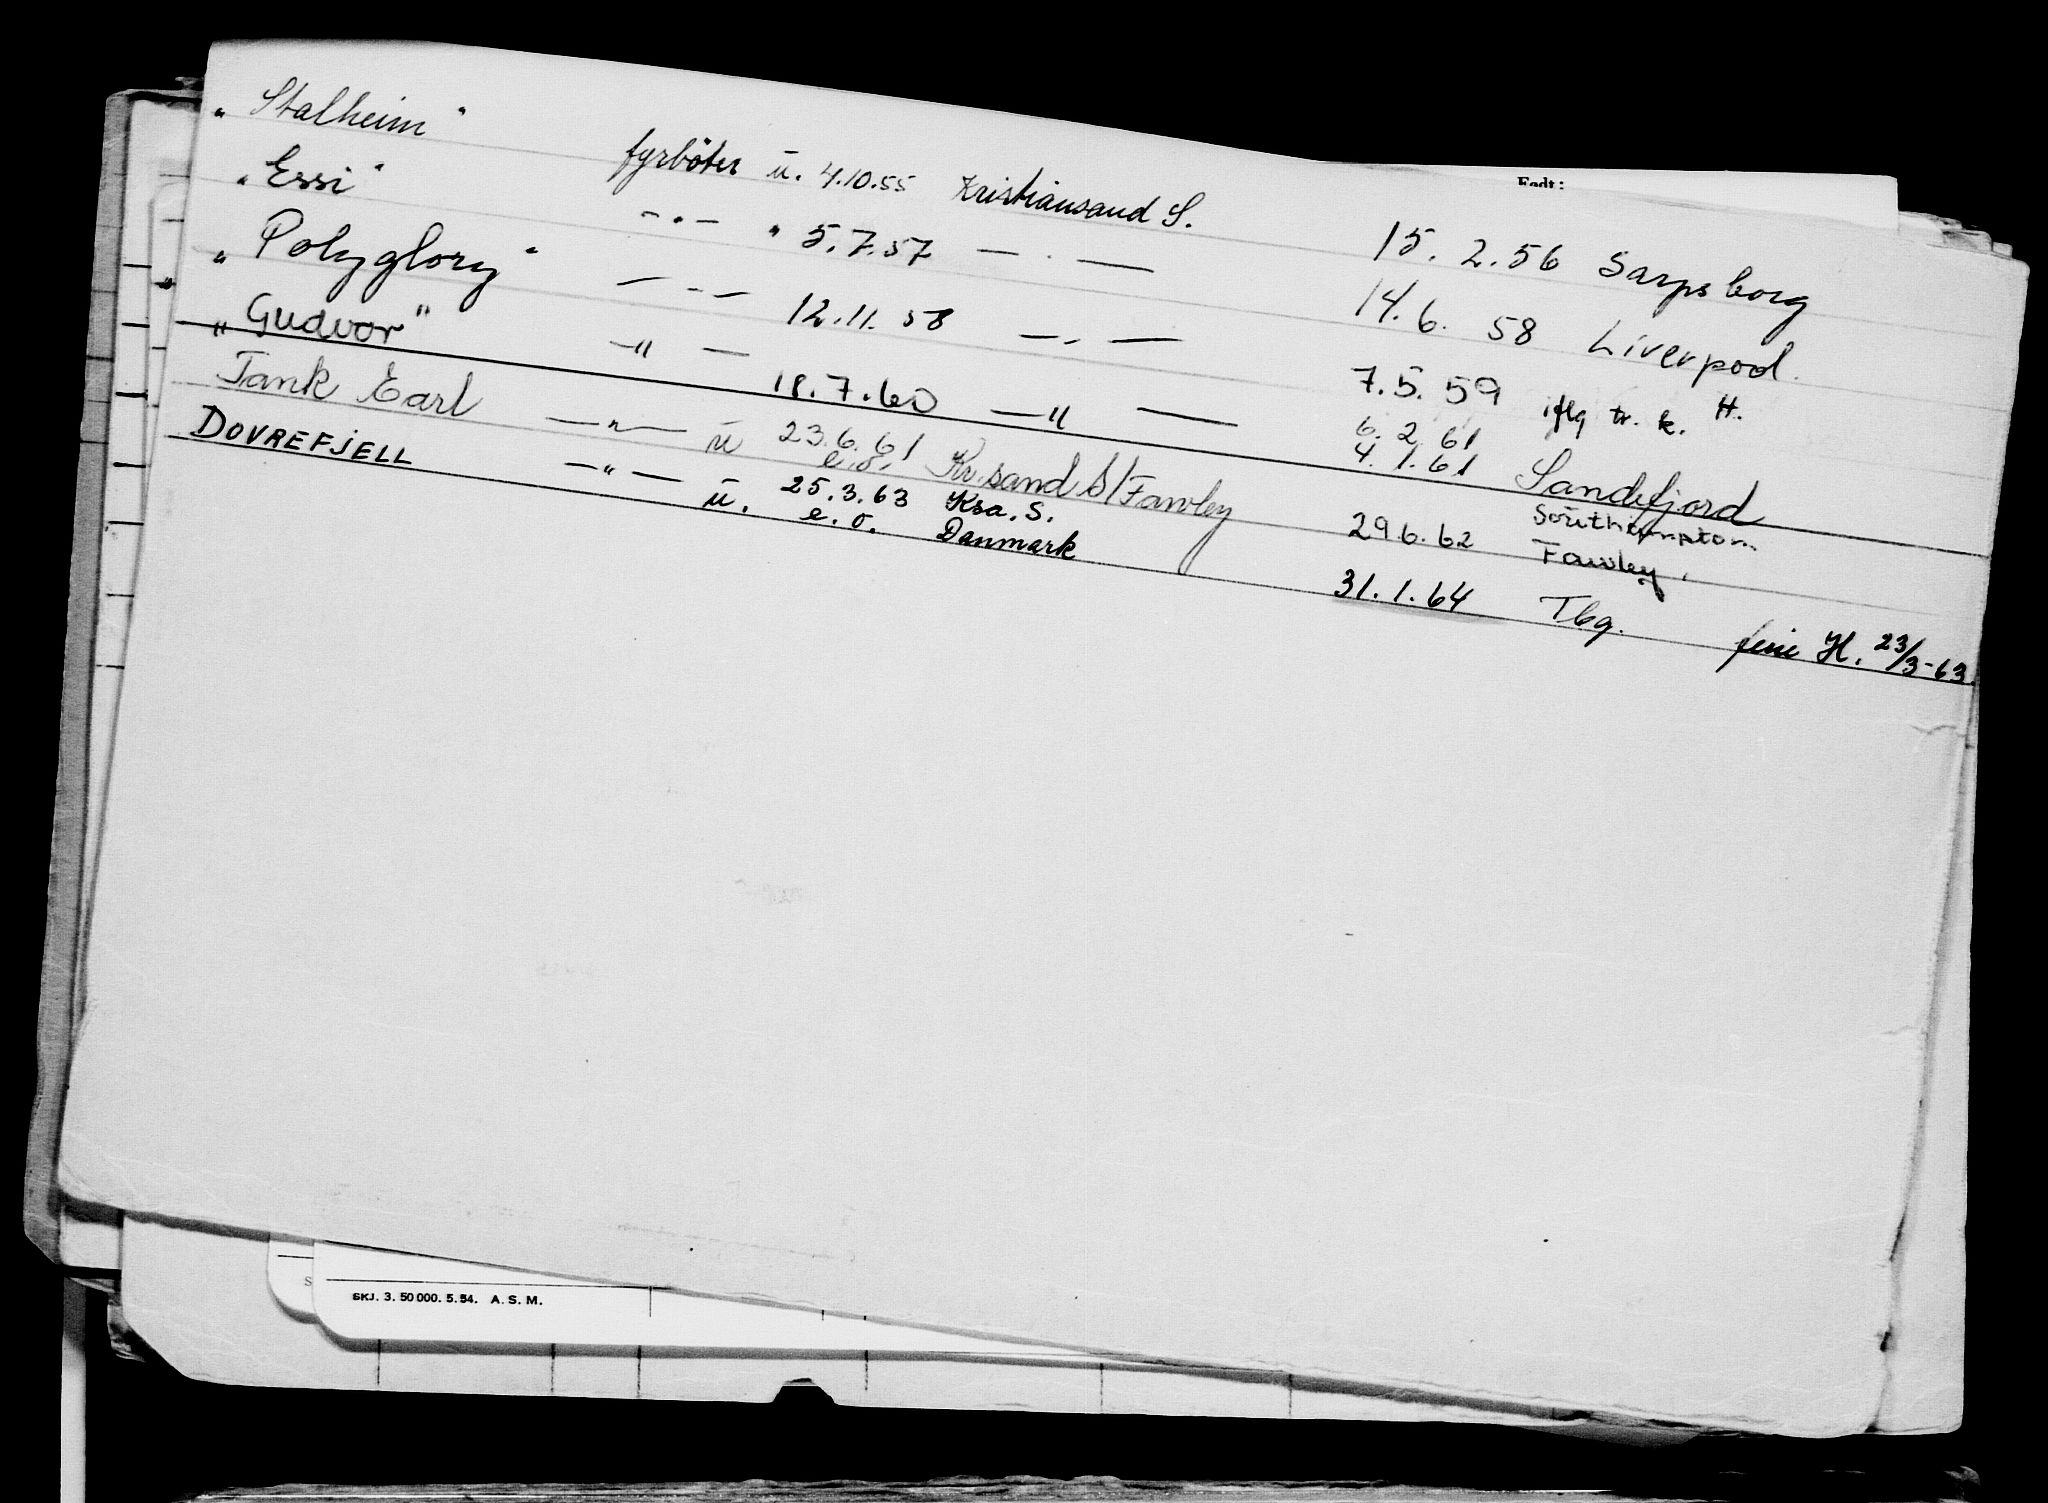 Født:
"Stalheim" fyrböter ū. 4.10.55 Kristiansand S. 15.2.56 Sarpsborg
"Essi" —"— " 5.7.57 —"— 14.6.58 Liverpool.
"Polyglory" —"— 12.11.58 —"— 7.5.59 iflg tr. k. H.
"Gudvor" —"— 18.7.60 —"— 6.2.61 Sandefjord
4.1.61 Southampton
Tank Earl —"— ū 23.6.61 Kr.sand S/Fawley 29.6.62 Fawley.
e.o.
DOVREFJELL —"— ū. 25.3.63 Ksa. S. 31.1.64 Tbg. ferie H. 23/3-63.
e.o. Danmark
SKJ. 3. 50 000. 5.54. A. S. M.